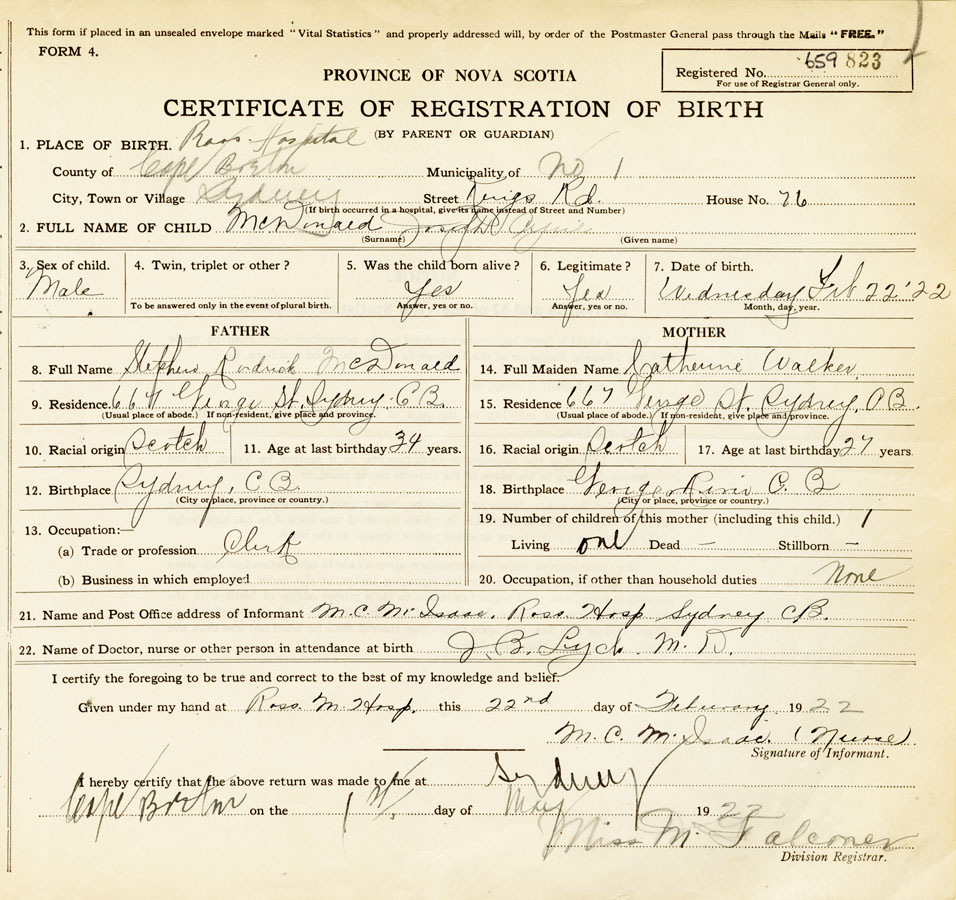 This form if placed in an unsealed envelope marked "Vital Statistics" and properly addressed will, by order of the Postmaster General pass through the Mails "FREE."
FORM 4.
Registered No. 659 823
For use of Registrar General only.
PROVINCE OF NOVA SCOTIA
CERTIFICATE OF REGISTRATION OF BIRTH
(BY PARENT OR GUARDIAN)
1. PLACE OF BIRTH. Ross Hospital
County of Cape Breton Municipality of No 1
City, Town or Village Sydney Street Kings Rd. House No. 76
(If birth occurred in a hospital, give its name instead of Street and Number)
2. FULL NAME OF CHILD McDonald Joseph
(Surname) (Given name)
3. Sex of child. 4. Twin, triplet or other? 5. Was the child born alive? 6. Legitimate? 7. Date of birth.
Male Yes Yes Wednesday Feb 22 '22
To be answered only in the event of plural birth. Answer, yes or no. Answer, yes or no. Month, day, year.
FATHER
8. Full Name Stephen Rodrick McDonald
9. Residence. 667 George St. Sydney, C B.
(Usual place of abode.) If non-resident, give place and province.
10. Racial origin Scotch 11. Age at last birthday 34 years.
12. Birthplace Sydney, C B
(City or place, province or country.)
13. Occupation:—
(a) Trade or profession Clerk
(b) Business in which employed
MOTHER
14. Full Maiden Name Catherine Walker
15. Residence 667 George St. Sydney, C B.
(Usual place of abode.) If non-resident, give place and province.
16. Racial origin Scotch 17. Age at last birthday 27 years.
18. Birthplace George River C. B
(City or place, province or country.)
19. Number of children of this mother (including this child.) 1
Living one Dead — Stillborn —
20. Occupation, if other than household duties None
21. Name and Post Office address of Informant M. C. McIsaac, Ross. Hosp Sydney CB.
22. Name of Doctor, nurse or other person in attendance at birth J. B. M. D.
I certify the foregoing to be true and correct to the best of my knowledge and belief.
Given under my hand at Ross. M. Hosp. this 22nd day of February 1922
M. C. McIsaac. (Nurse).
Signature of Informant.
I hereby certify that the above return was made to me at Sydney
Cape Breton on the 1st. day of May 1922
Miss M. Falconer
Division Registrar.